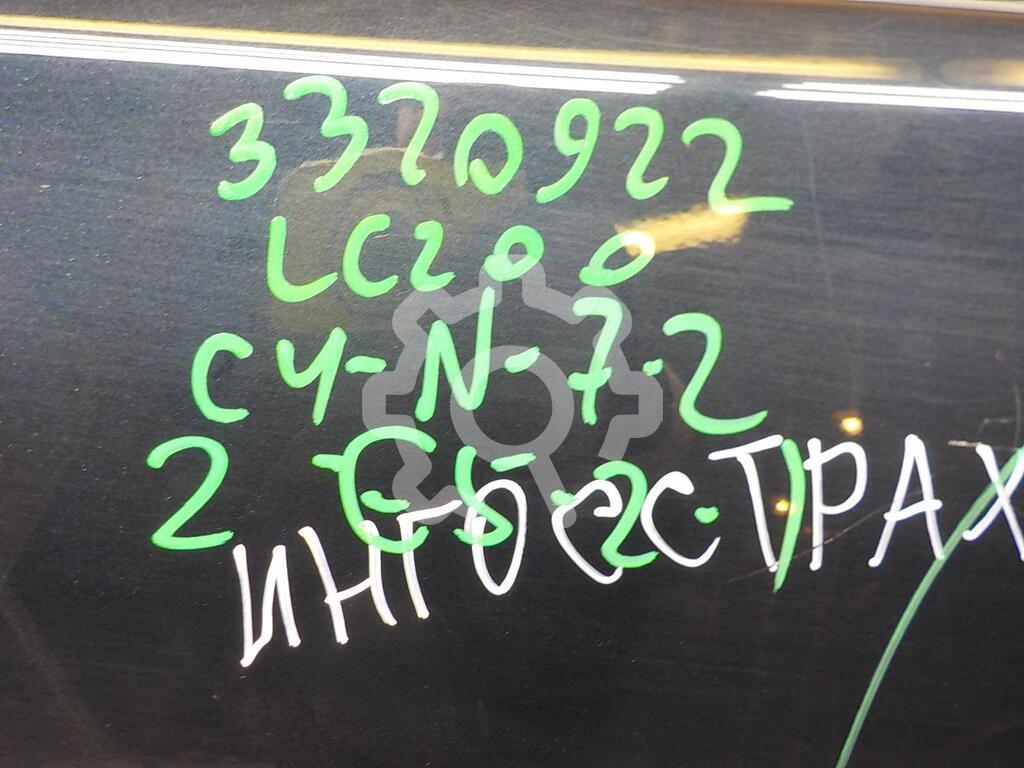 3320922
LC200
C4-N-7-2
2-E-5-2.1
ИНГОССТРАХ